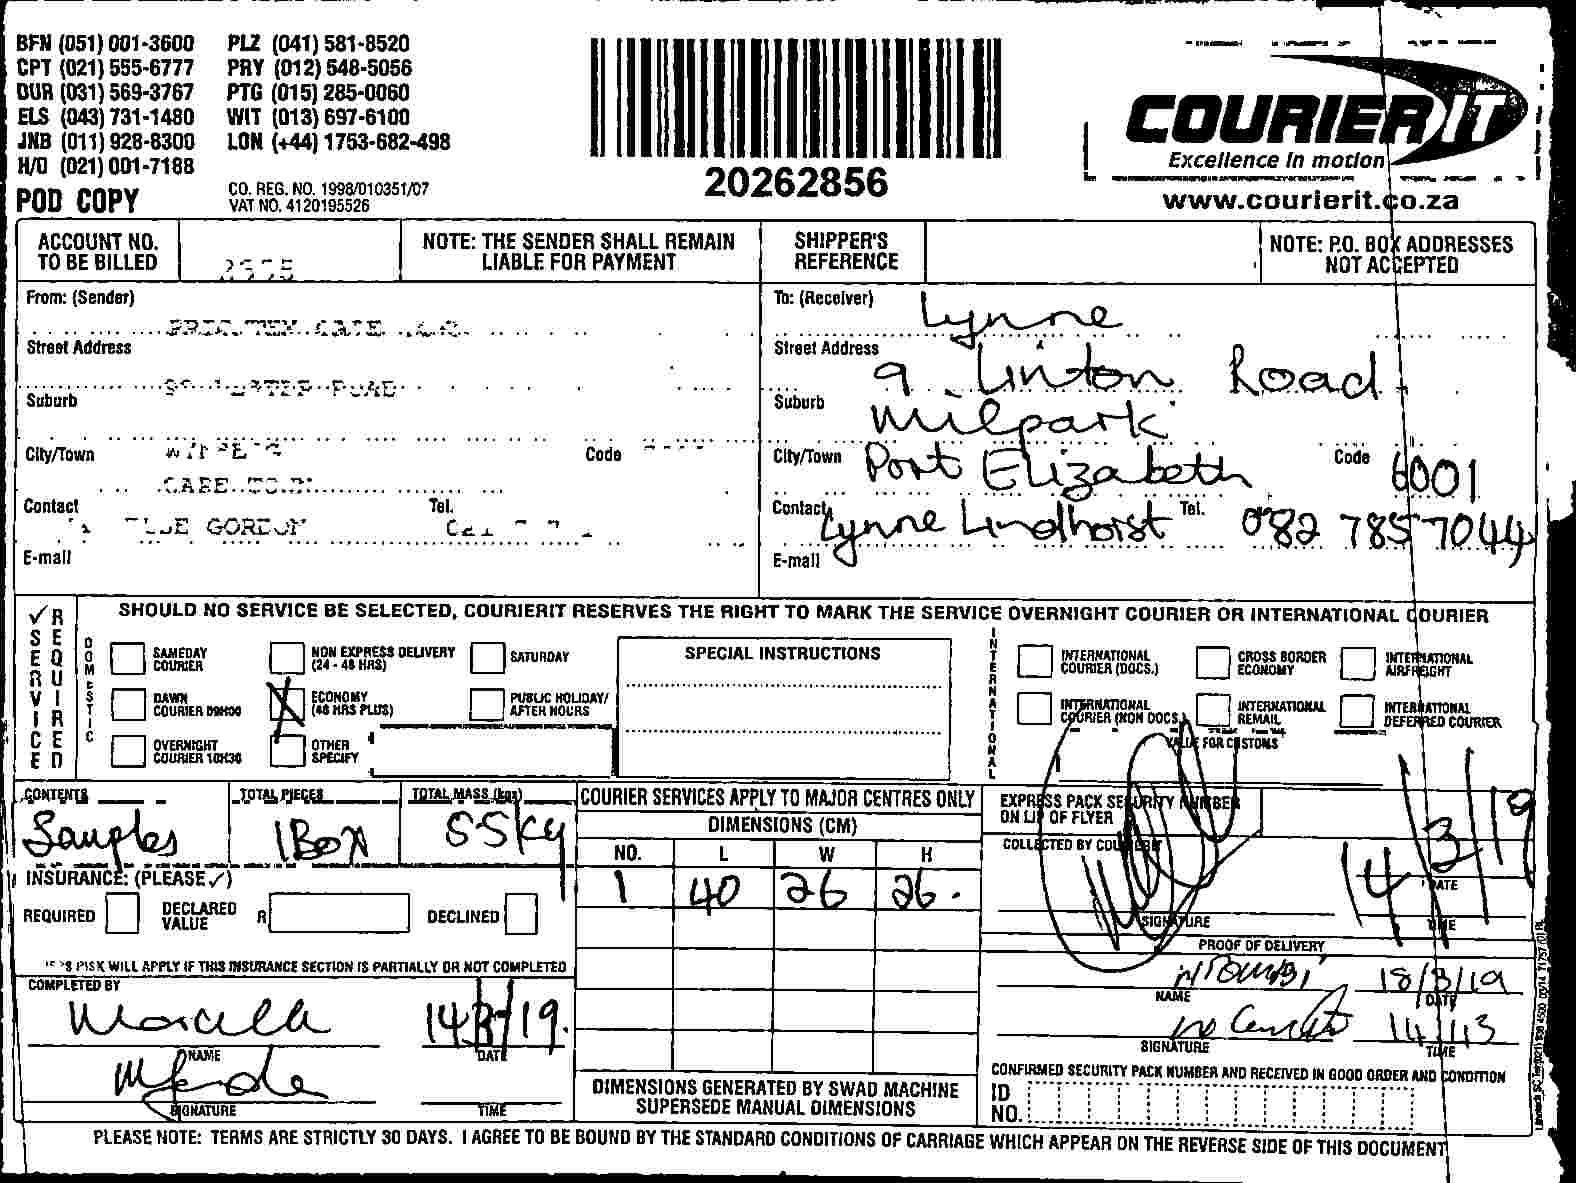 BFN (051) 001-3600 PLZ (041) 581-8520
CPT (021) 555-6777 PRY (012) 548-5056
DUR (031) 569-3767 PTG (015) 285-0060
ELS (043) 731-1480 WIT (013) 697-6100
JNB (011) 928-8300 LON (+44) 1753-682-498
H/O (021) 001-7188
POD COPY
CO. REG. NO. 1998/010351/07
VAT NO. 4120195526
20262856
COURIER IT
Excellence in motion
www.courierit.co.za
ACCOUNT NO.
TO BE BILLED
NOTE: THE SENDER SHALL REMAIN
LIABLE FOR PAYMENT
SHIPPER'S
REFERENCE
NOTE: P.O. BOX ADDRESSES
NOT ACCEPTED
From: (Sender)
Street Address
Suburb
City/Town Code
Contact Tel.
GORDON
E-mail
To: (Receiver) Lynne
Street Address 9 Linton Road
Suburb Milpark
City/Town Port Elizabeth Code 6001
Contact Lynne Lindhorst Tel. 082 785 7044
E-mail
✓ SERVICE REQUIRED
SHOULD NO SERVICE BE SELECTED, COURIERIT RESERVES THE RIGHT TO MARK THE SERVICE OVERNIGHT COURIER OR INTERNATIONAL COURIER
DOMESTIC
SAMEDAY
COURIER
NON EXPRESS DELIVERY
(24 - 48 HRS)
SATURDAY
DAWN
COURIER 09H00
ECONOMY
(48 HRS PLUS)
PUBLIC HOLIDAY/
AFTER HOURS
OVERNIGHT
COURIER 10H30
OTHER
SPECIFY
SPECIAL INSTRUCTIONS
INTERNATIONAL
INTERNATIONAL
COURIER (DOCS.)
CROSS BORDER
ECONOMY
INTERNATIONAL
AIRFREIGHT
INTERNATIONAL
COURIER (NON DOCS.)
INTERNATIONAL
REMAIL
INTERNATIONAL
DEFERRED COURIER
VALUE FOR CUSTOMS
CONTENTS TOTAL PIECES TOTAL MASS (kgs)
Samples 1 Box
INSURANCE: (PLEASE ✓)
REQUIRED DECLARED
VALUE R DECLINED
RISK WILL APPLY IF THIS INSURANCE SECTION IS PARTIALLY OR NOT COMPLETED
COURIER SERVICES APPLY TO MAJOR CENTRES ONLY
DIMENSIONS (CM)
NO. L W H
1 40 26 26.
DIMENSIONS GENERATED BY SWAD MACHINE
SUPERSEDE MANUAL DIMENSIONS
COMPLETED BY
14/3/19.
NAME DATE
SIGNATURE TIME
EXPRESS PACK SECURITY NUMBER
ON LIP OF FLYER
COLLECTED BY COURIERIT
14/3/19
DATE
SIGNATURE TIME
PROOF OF DELIVERY
18/3/19
NAME DATE
14:13
SIGNATURE TIME
CONFIRMED SECURITY PACK NUMBER AND RECEIVED IN GOOD ORDER AND CONDITION
ID
NO.
PLEASE NOTE: TERMS ARE STRICTLY 30 DAYS. I AGREE TO BE BOUND BY THE STANDARD CONDITIONS OF CARRIAGE WHICH APPEAR ON THE REVERSE SIDE OF THIS DOCUMENT